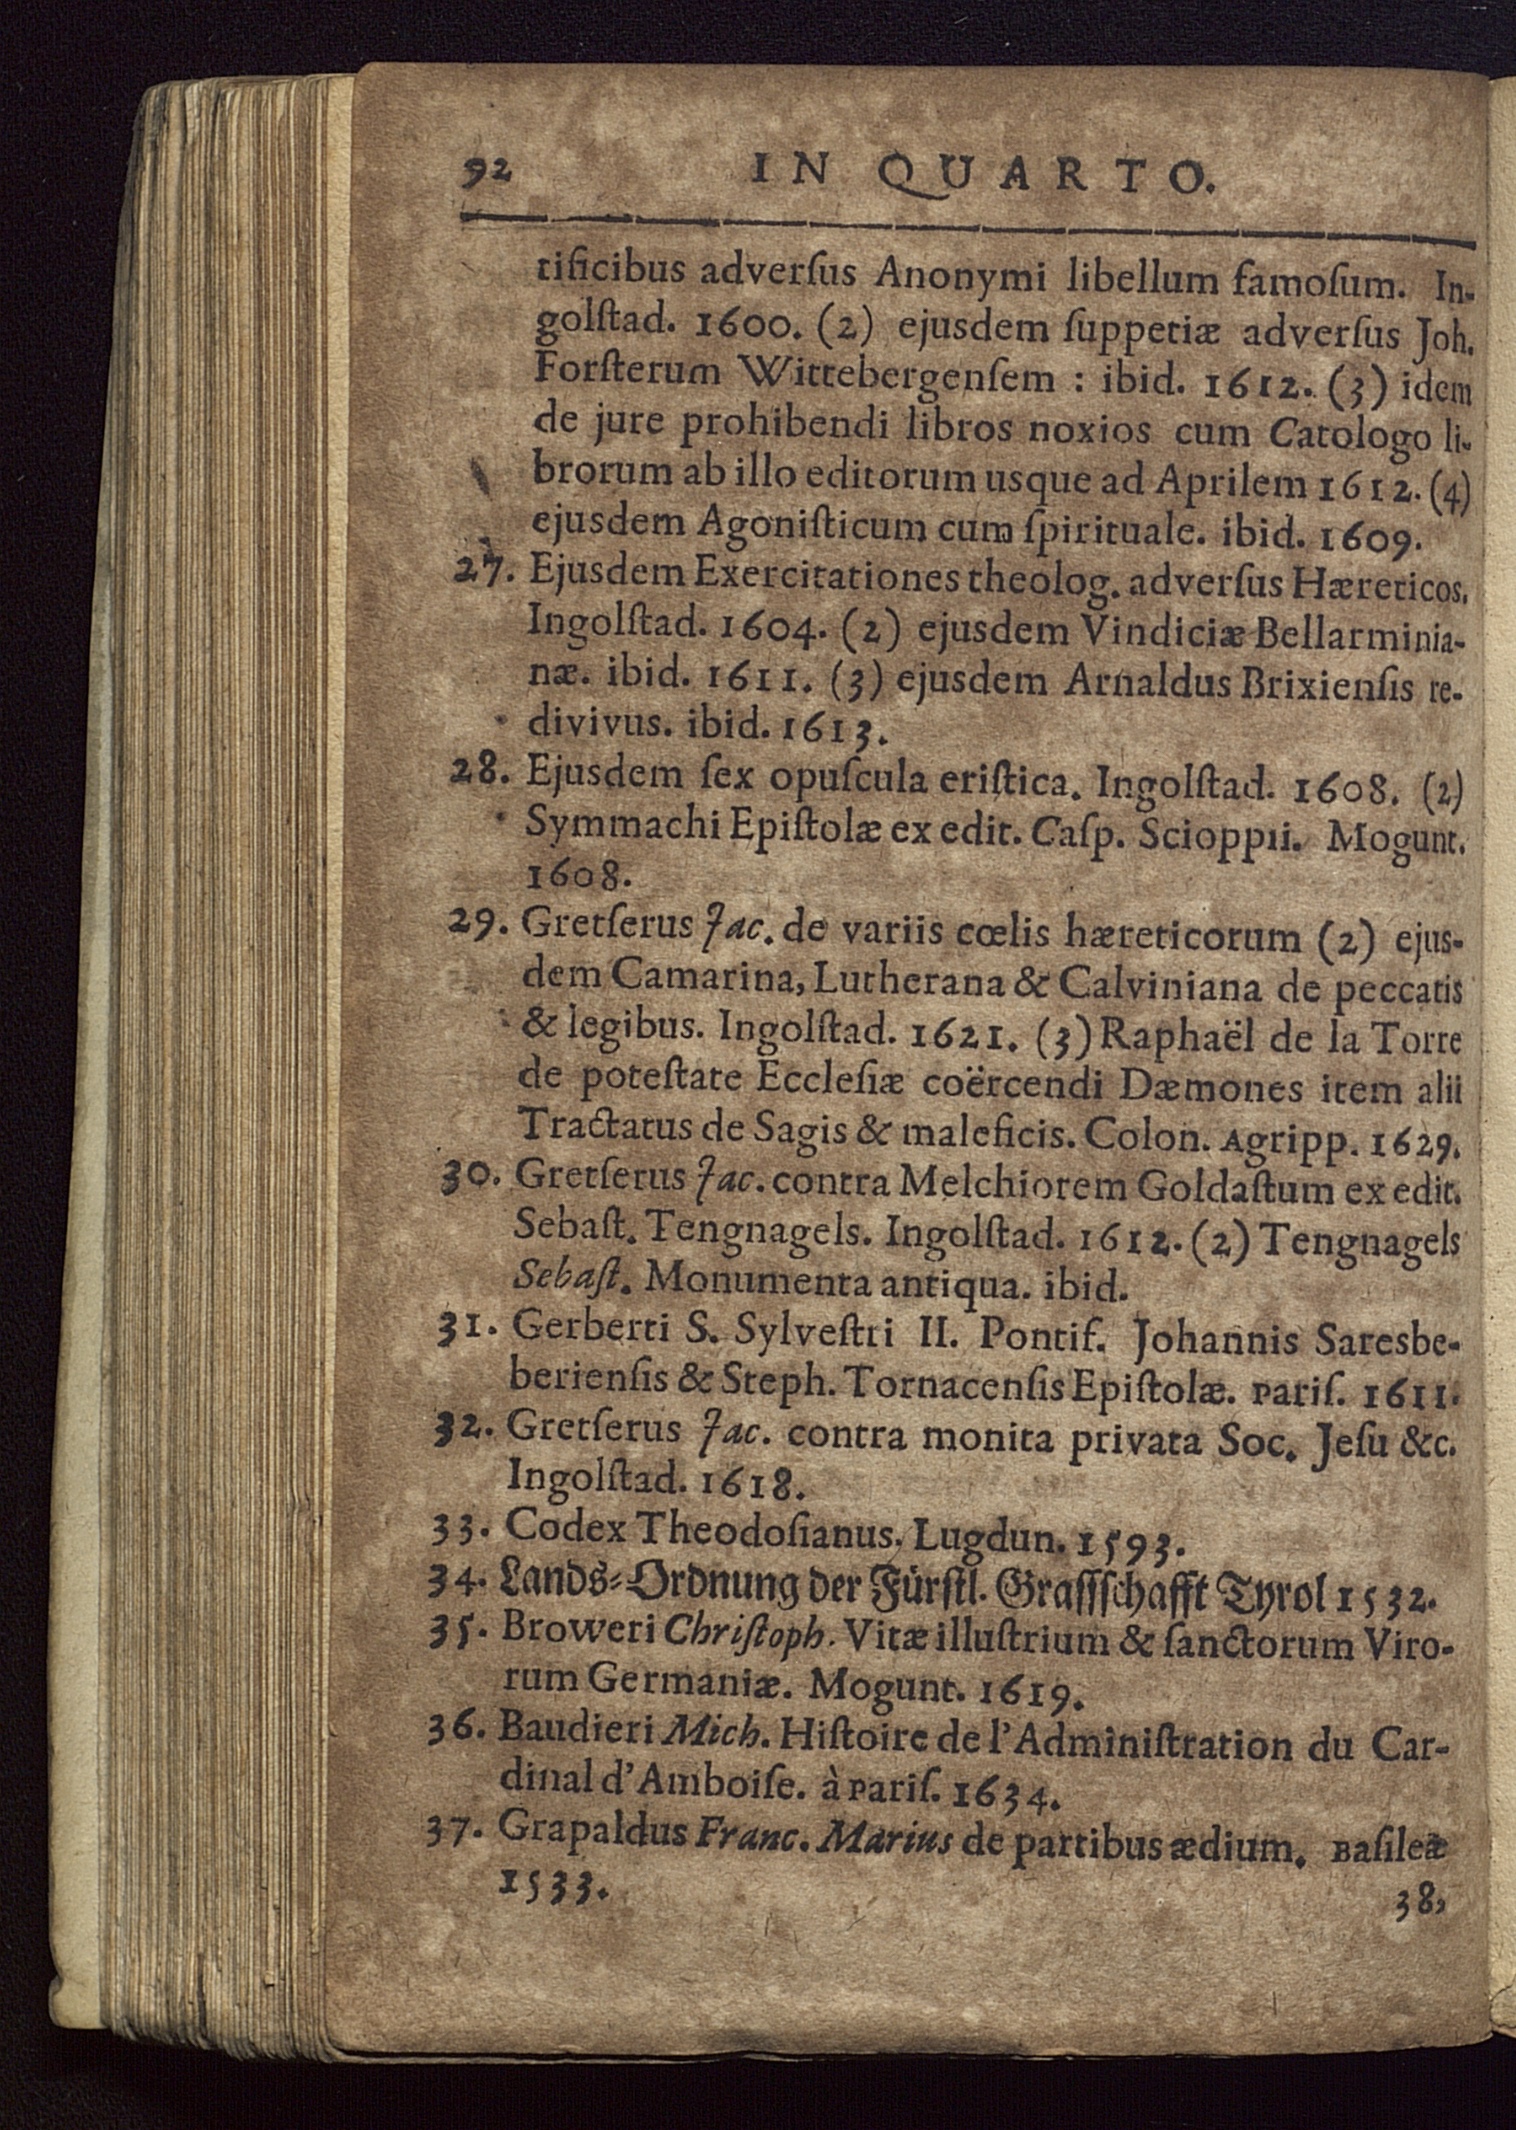 92 IN QUARTO.
tificibus adverſus Anonymi libellum famoſum. In-
golſtad. 1600. (2) ejusdem ſuppetiæ adverſus Joh.
Forſterum Wittebergenſem : ibid. 1612. (3) idem
de jure prohibendi libros noxios cum Catologo li-
brorum ab illo editorum usque ad Aprilem 1612. (4)
ejusdem Agoniſticum cum ſpirituale. ibid. 1609.
27. Ejusdem Exercitationes theolog. adverſus Hæreticos.
Ingolſtad. 1604. (2) ejusdem Vindiciæ Bellarminia-
næ. ibid. 1611. (3) ejusdem Arnaldus Brixienſis re-
divivus. ibid. 1613.
28. Ejusdem ſex opuſcula eriſtica. Ingolſtad. 1608. (2)
Symmachi Epiſtolæ ex edit. Caſp. Scioppii. Mogunt.
1608.
29. Gretſerus Jac. de variis cœlis hæreticorum (2) ejus-
dem Camarina, Lutherana & Calviniana de peccatis
& legibus. Ingolſtad. 1621. (3) Raphaël de la Torre
de poteſtate Eccleſiæ coërcendi Dæmones item alii
Tractatus de Sagis & maleficis. Colon. Agripp. 1629.
30. Gretſerus Jac. contra Melchiorem Goldaſtum ex edit.
Sebaſt. Tengnagels. Ingolſtad. 1612. (2) Tengnagels
Sebaſt. Monumenta antiqua. ibid.
31. Gerberti S. Sylveſtri II. Pontif. Johannis Saresbe-
berienſis & Steph. Tornacenſis Epiſtolæ. Pariſ. 1611.
32. Gretſerus Jac. contra monita privata Soc. Jeſu &c.
Ingolſtad. 1618.
33. Codex Theodoſianus. Lugdun. 1593.
34. Lands-Ordnung der Fürſtl. Graffſchafft Tyrol 1532.
35. Broweri Chriſtoph. Vitæ illuſtrium & ſanctorum Viro-
rum Germaniæ. Mogunt. 1619.
36. Baudieri Mich. Hiſtoire de l'Adminiſtration du Car-
dinal d'Amboiſe. à Pariſ. 1634.
37. Grapaldus Franc. Marius de partibus ædium. Baſileæ
1533.
38,